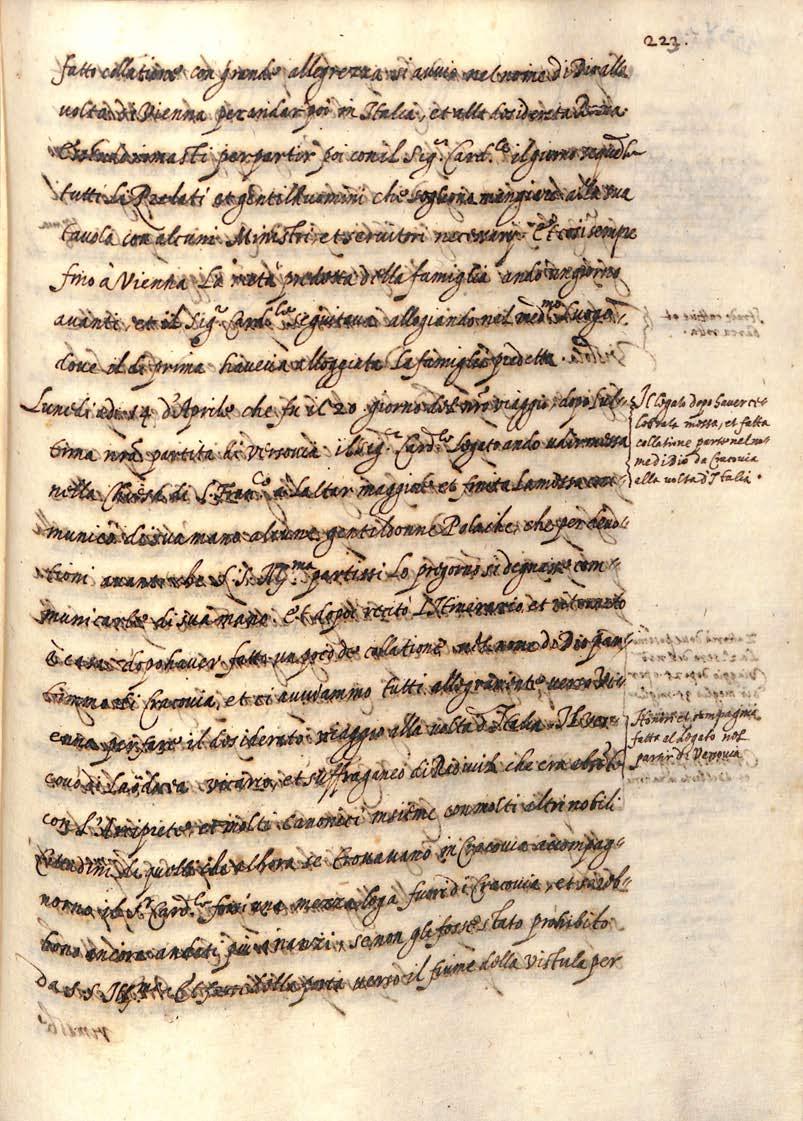 223.
fatto collatione con grande allegrezza si aviò nel nome di Dio alla
volta di Vienna per andar poi in Italia, et alla desiderata Roma.
rimasti per partir poi con il Sig.r Card.le il giorno seguente
tutti li Prelati et gentilhuomini che sogliono mangiare alla sua
tavola con alcuni Ministri et servitori necessarij. Et così sempre
fino à Vienna la metà predetta della famiglia andò un giorno
avanti, et il Sig.r Card.le seguitava allogiando nel med.mo luogo,
dove il dì prima haveva alloggiata la famiglia predetta.
Lunedi adi 14 d'Aprile che fu il 20 giorno del nro viaggio, dopo l'ul=
tima nra partita di Versovia il Sig.r Card.le Legato andò a dir messa
nella Chiesa di S. Fran.co a l'altar maggiore et finita la messa com=
municò di sua mano alcune gentildonne Polache, che per devo=
tioni avante che S. S. Ill.ma partissi lo pregorno si degnasse com=
municarle di sua mano. Et dopoi recitò l'Itinerario, et ritornato
à casa dopo haver fatto un poco de collatione nel nome di Dio par=
timmo di Cracovia, et ci aviammo tutti allegramente verso Vi=
enna per fare il desiderato viaggio alla volta d'Italia. Il Ves=
covo di Laodicea vicario, et suffraganeo di che era
con l'Arcipiete, et molti Canonici insieme con molti altri nobili
Cittadini di quelli che alhora se trovavano in Cracovia accompag=
norno il S.r Card.le forsi una mezza lega fuori di Cracovia, et sareb=
bono ancora andati più inanzi, se non gli fosse stato prohibito
da S. S. Ill.ma Et fuori della porta verso il fiume della Vistula per
Il Legato dopo haver ce=
lebrata messa, et fatta
collatione parte nel no=
me di Dio da Cracovia
alla volta d'Italia.
Honori et compagnia
fatta al Legato nel
partir di Versovia